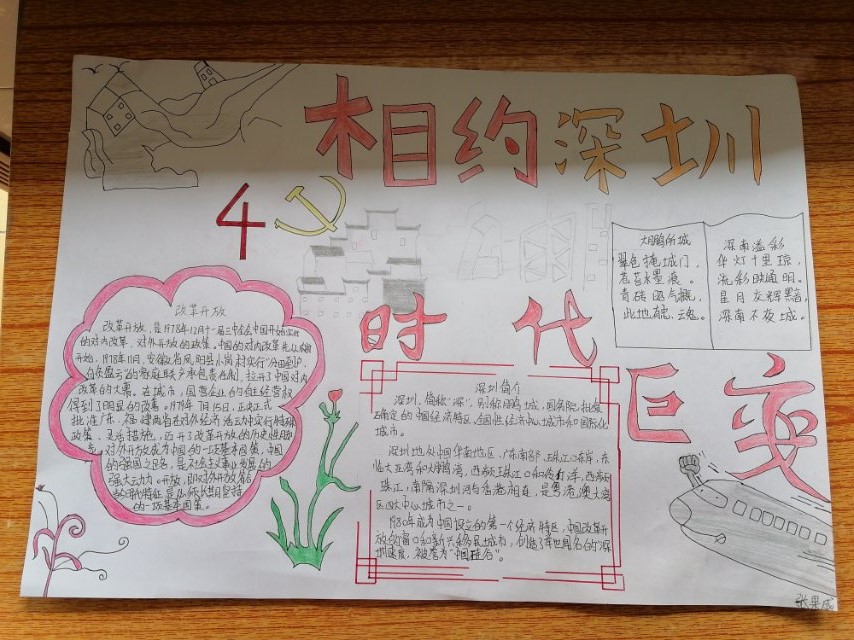 相约深圳
4
时代
巨变
大鹏所城
翠色掩城门,
苍苔水墨痕。
青砖凹气魄,
此地魂。
深南溢彩
华灯十里琼,
流彩映通明。
星月灰辉黯,
深南不夜城。
改革开放
改革开放,是1978年12月十一届三中全会中国开始实行
的对内改革、对外开放的政策。中国的对内改革先从农村
开始,1978年11月,安徽省凤阳县小岗村实行“分田到户,
自负盈亏”的家庭联产承包责任制,拉开了中国对内
改革的大幕。在城市,国营企业的自主经营权
得到了明显的改善。1979年7月15日,正式
批准广东、福建两省在对外经济活动中实行特殊
政策、灵活措施,迈开了改革开放的历史性脚
步。对外开放成为中国的一项基本国策,中国
的强国之路,是社会主义事业发展的
强大动力。改革开放建
的一项基本国策。
深圳简介
深圳,简称“深”,别称鹏城,国务院批复
确定的中国经济特区、全国性经济中心城市和国际化
城市。
深圳地处中国华南地区、广东南部、珠江口东岸,东
临大亚湾和大鹏湾,西濒珠江口和伶仃洋,西濒
珠江,南隔深圳河与香港相连,是粤港澳大湾
区四大中心城市之一。
1980年成为中国设立的第一个经济特区,中国改革开
放的窗口和新兴移民城市,创造了举世闻名的“深
圳速度”,被誉为“中国硅谷”。
张果成